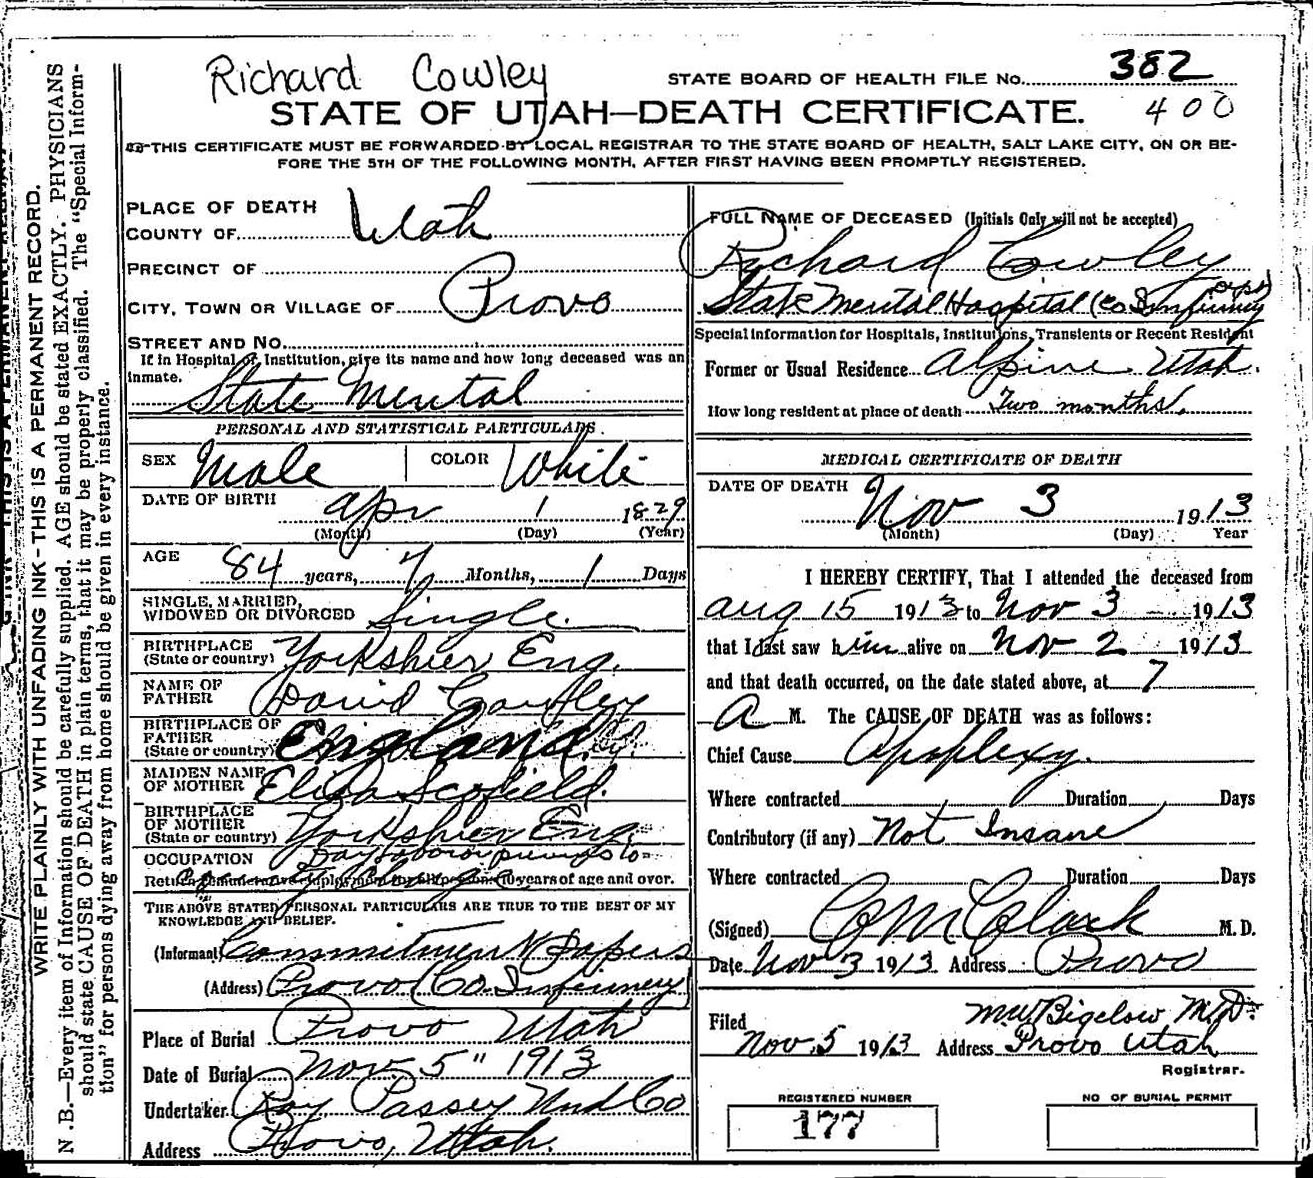 Richard Cowley
STATE BOARD OF HEALTH FILE No. 382
STATE OF UTAH—DEATH CERTIFICATE. 400
THIS CERTIFICATE MUST BE FORWARDED BY LOCAL REGISTRAR TO THE STATE BOARD OF HEALTH, SALT LAKE CITY, ON OR BE-
FORE THE 5TH OF THE FOLLOWING MONTH, AFTER FIRST HAVING BEEN PROMPTLY REGISTERED.
WRITE PLAINLY WITH UNFADING INK—THIS IS A PERMANENT RECORD.
N.B.—Every item of Information should be carefully supplied. AGE should be stated EXACTLY. PHYSICIANS
should state CAUSE OF DEATH in plain terms, that it may be properly classified. The "Special Inform-
tion" for persons dying away from home should be given in every instance.
PLACE OF DEATH
COUNTY OF Utah
PRECINCT OF
CITY, TOWN OR VILLAGE OF Provo
STREET AND No.
If in Hospital or Institution, give its name and how long deceased was an
inmate.
State Mental
PERSONAL AND STATISTICAL PARTICULARS.
SEX Male COLOR White
DATE OF BIRTH Apr 1 1829
(Month) (Day) (Year)
AGE 84 years, 7 Months, 1 Days
SINGLE, MARRIED,
WIDOWED OR DIVORCED Single
BIRTHPLACE
(State or country) Yorkshier Eng.
NAME OF
FATHER David Cowley
BIRTHPLACE OF
FATHER
(State or country) England.
MAIDEN NAME
OF MOTHER Eliza Scofield.
BIRTHPLACE
OF MOTHER
(State or country) Yorkshier Eng.
OCCUPATION Day laborer previous to
Return remunerative employment for all persons 10 years of age and over.
THE ABOVE STATED PERSONAL PARTICULARS ARE TRUE TO THE BEST OF MY
KNOWLEDGE AND BELIEF.
(Informant) Commitment Papers
(Address) Provo (Co. Infirmery)
Place of Burial Provo Utah
Date of Burial Nov. 5" 1913
Undertaker Roy Passey Und Co
Address Provo, Utah.
FULL NAME OF DECEASED (Initials Only will not be accepted)
Richard Cowley
State Mental Hospital (Co Infirmery
Special Information for Hospitals, Institutions, Transients or Recent Resident
Former or Usual Residence Alpine Utah.
How long resident at place of death Two months.
MEDICAL CERTIFICATE OF DEATH
DATE OF DEATH Nov 3 1913
(Month) (Day) Year
I HEREBY CERTIFY, That I attended the deceased from
Aug 15 1913 to Nov 3 1913
that I last saw him alive on Nov 2 1913
and that death occurred, on the date stated above, at 7
A M. The CAUSE OF DEATH was as follows:
Chief Cause Apoplexy.
Where contracted Duration Days
Contributory (if any) Not Insane
Where contracted Duration Days
(Signed) C M Clark M.D.
Date Nov 3 1913 Address Provo
Filed MW Bigelow M.D.
Nov. 5 1913 Address Provo Utah
Registrar.
REGISTERED NUMBER
177
NO OF BURIAL PERMIT